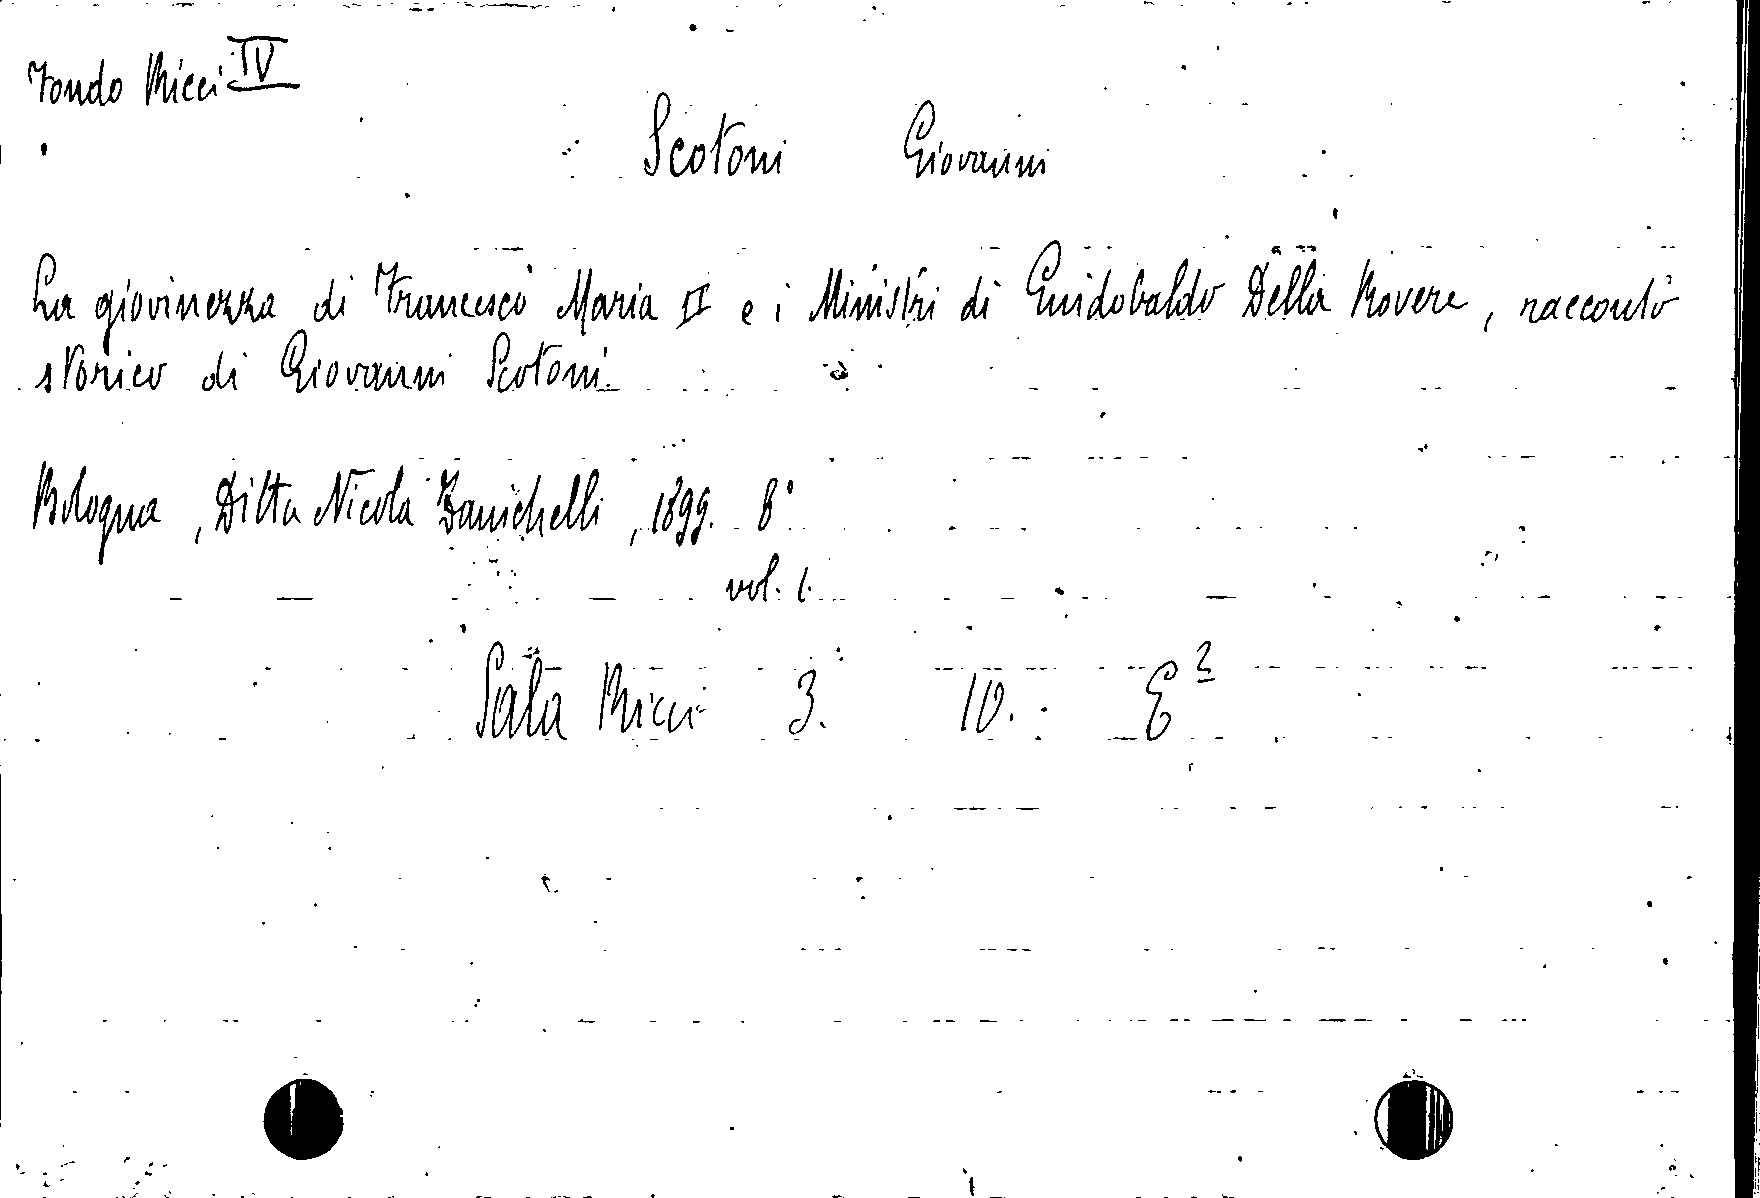 Fondo Ricci IV
Scotoni Giovanni
La giovinezza di Francesco Maria II e i Ministri di Guidobaldo Della Rovere, racconto
storico di Giovanni Scotoni.
Bologna, Ditta Nicola Zanichelli, 1899. 8°
vol. 1.
Sala Ricci 3. 10. E²